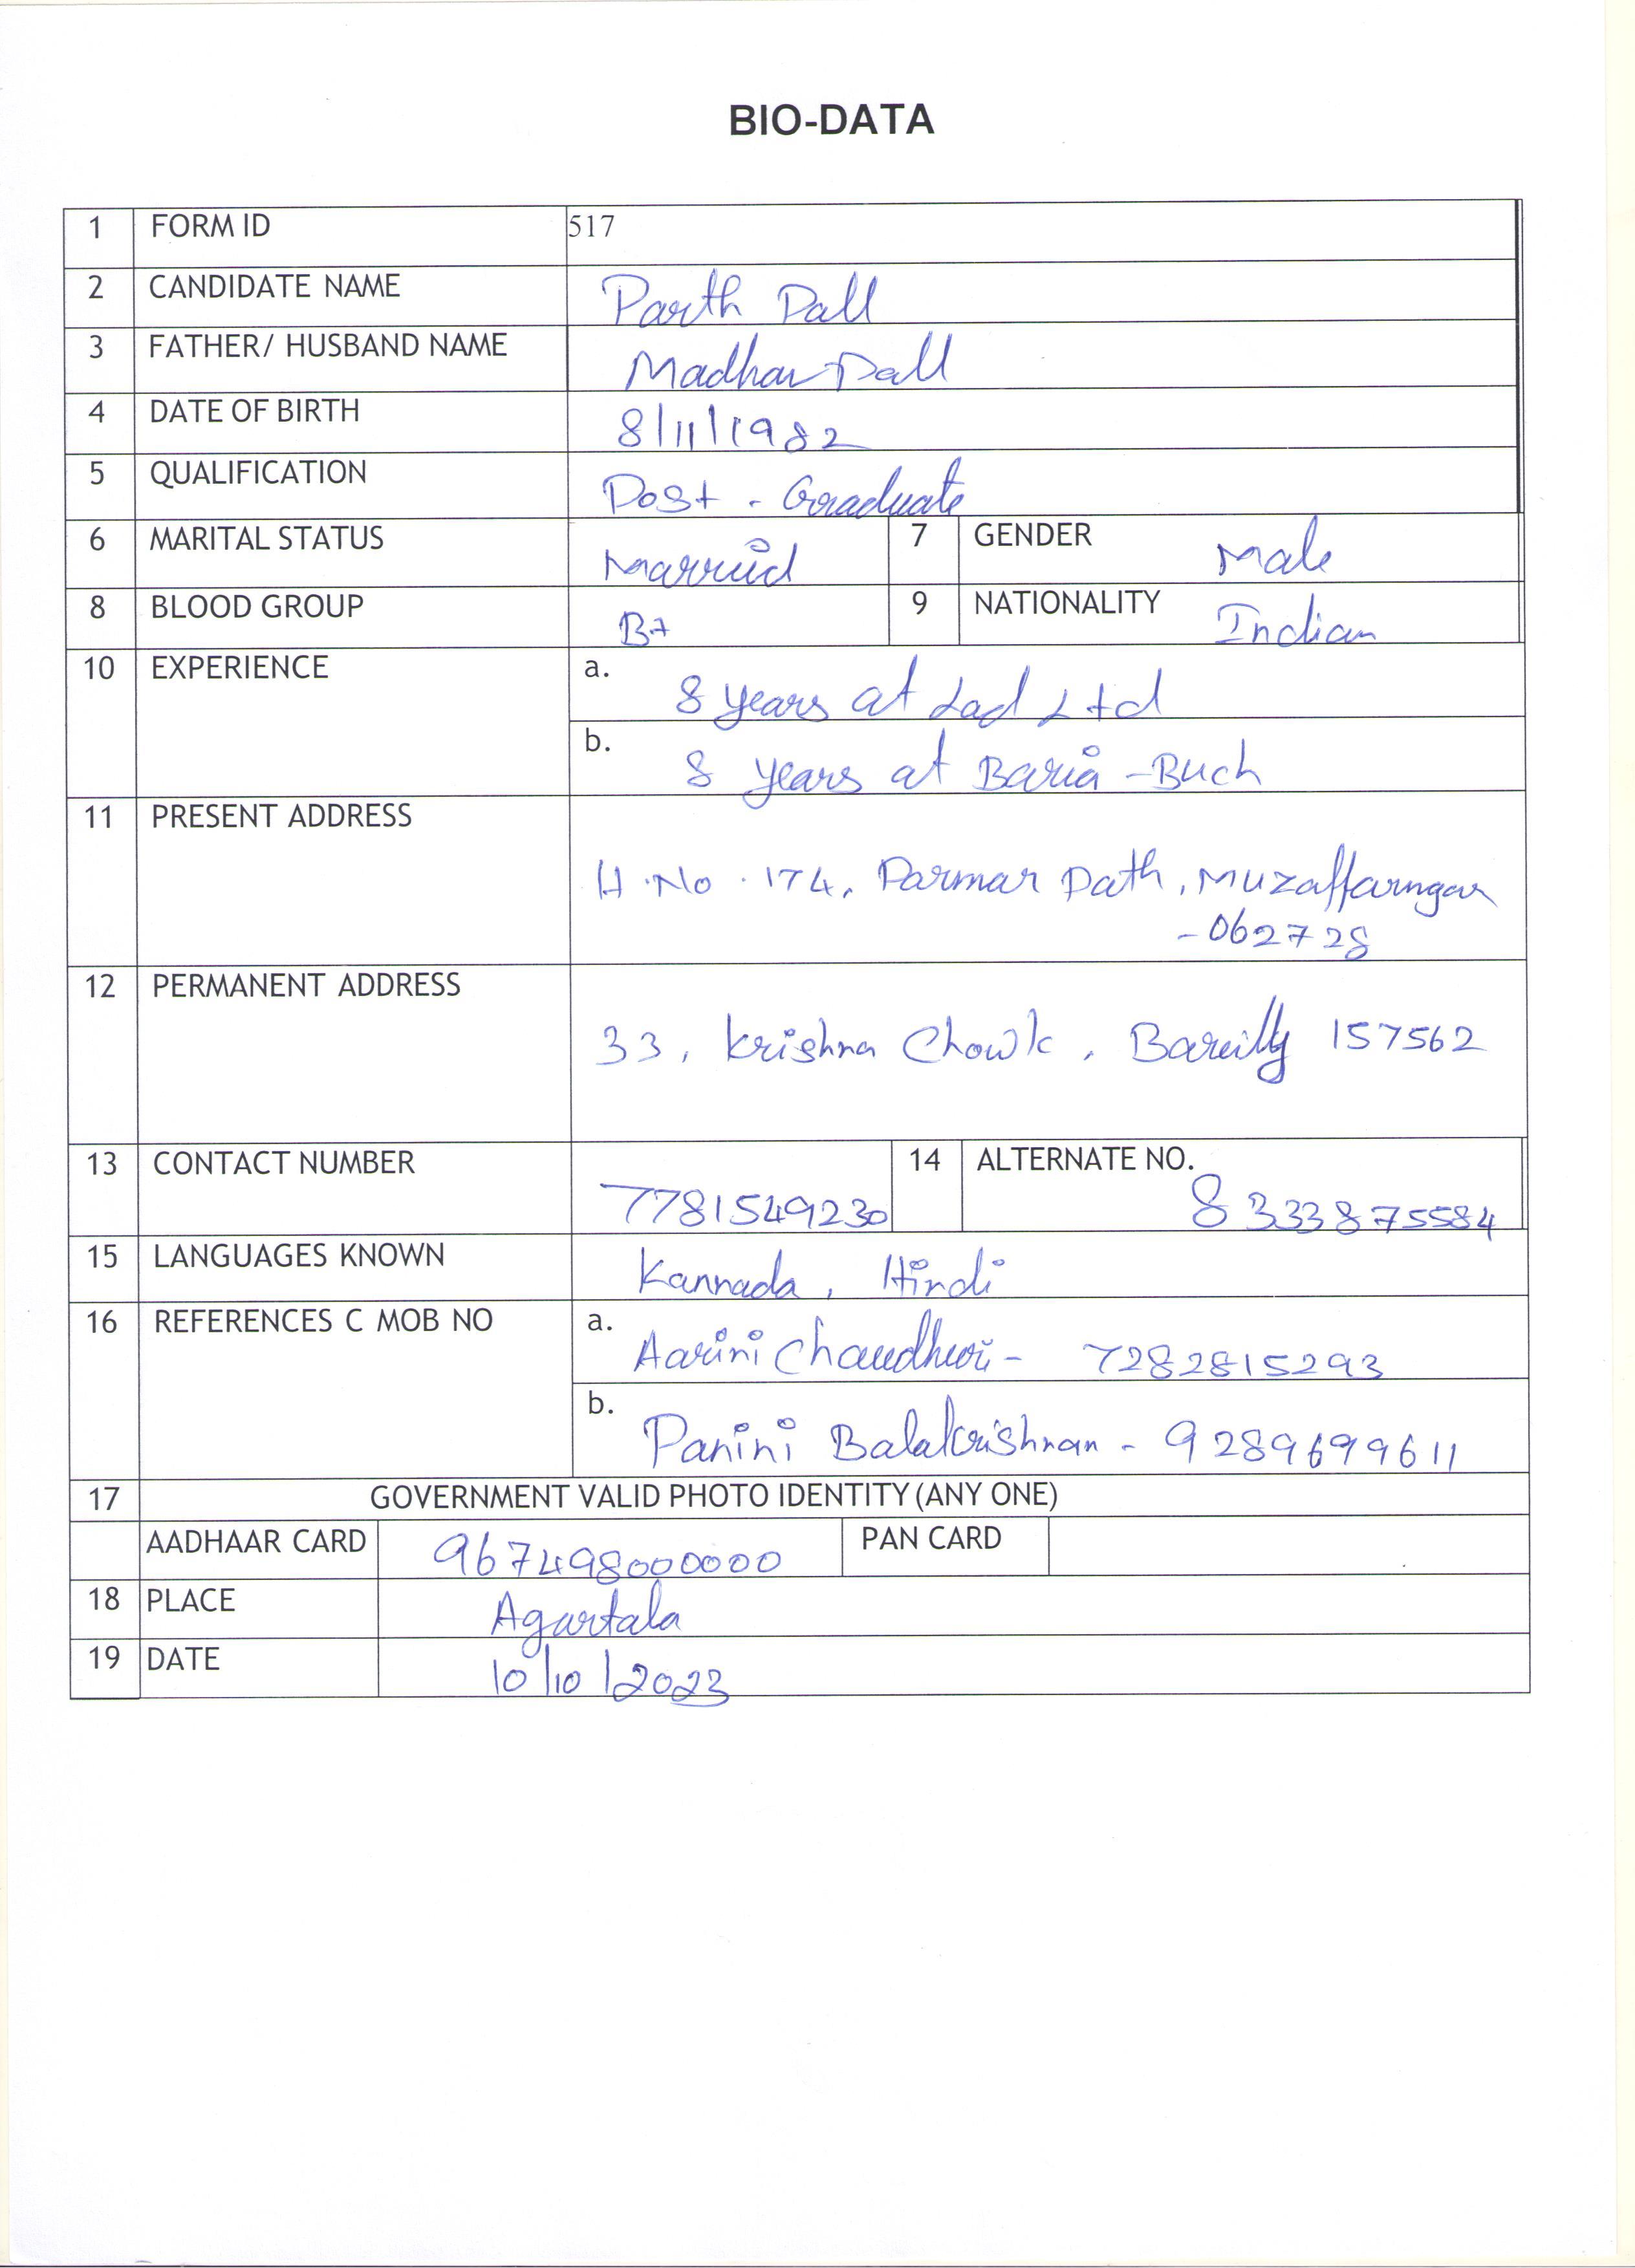 BIO-DATA
1 FORM ID 517
2 CANDIDATE NAME Parth Dall
3 FATHER/ HUSBAND NAME Madhav Dall
4 DATE OF BIRTH 8/11/1982
5 QUALIFICATION Post - Graduate
6 MARITAL STATUS Married 7 GENDER Male
8 BLOOD GROUP B+ 9 NATIONALITY Indian
10 EXPERIENCE a. 8 years at Lad Ltd
b. 8 years at Baria -Buch
11 PRESENT ADDRESS
H.No. 174, Parmar Path, Muzaffarngar
- 062728
12 PERMANENT ADDRESS
33, Krishna Chowk, Bareilly 157562
13 CONTACT NUMBER 7781549230 14 ALTERNATE NO. 8333875584
15 LANGUAGES KNOWN Kannada, Hindi
16 REFERENCES C MOB NO a. Aarini Chaudhuri - 7282815293
b. Panini Balakrishnan - 9289699611
17 GOVERNMENT VALID PHOTO IDENTITY (ANY ONE)
AADHAAR CARD 967498000000 PAN CARD
18 PLACE Agartala
19 DATE 10/10/2023